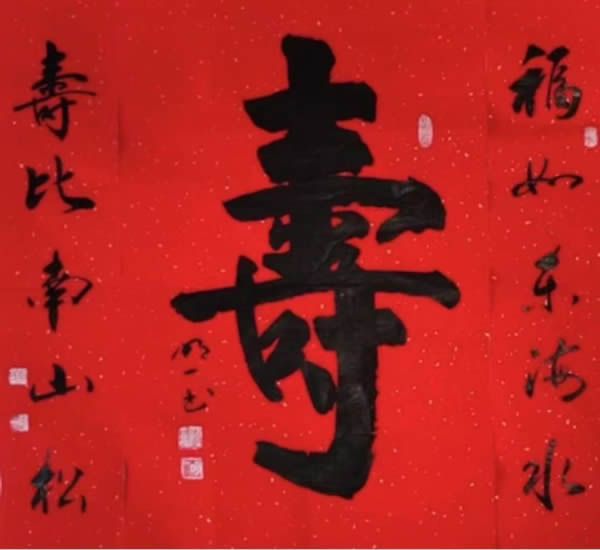 福如东海水
壽
壽比南山松